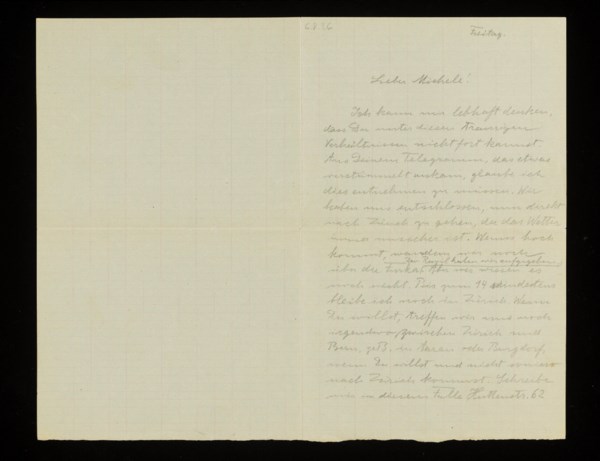 Freitag.
Lieber Michele!
Ich kann mir lebhaft denken,
dass Du unter diesen traurigen
Verhältnissen nicht fort kannst.
Aus Deinem Telegramm, das etwas
verstümmelt ankam, glaube ich
dies entnehmen zu müssen. Wir
haben uns entschlossen, nun direkt
nach Zürich zu gehen, da das Wetter
immer unsicher ist. Wenns hoch
kommt, wandern wir noch
Den Engel haben wir aufgegeben
über die Furka,
noch nicht. Bis zum 14 mindestens
bleibe ich noch in Zürich. Wenn
Du willst, treffen wir uns noch
irgendwo zwischen Zürich und
Bern, z.B. in Aarau oder Burgdorf,
wenn Du willst und nicht
nach Zürich kommst. Schreibe
mir in diesem Falle Huttenstr. 62